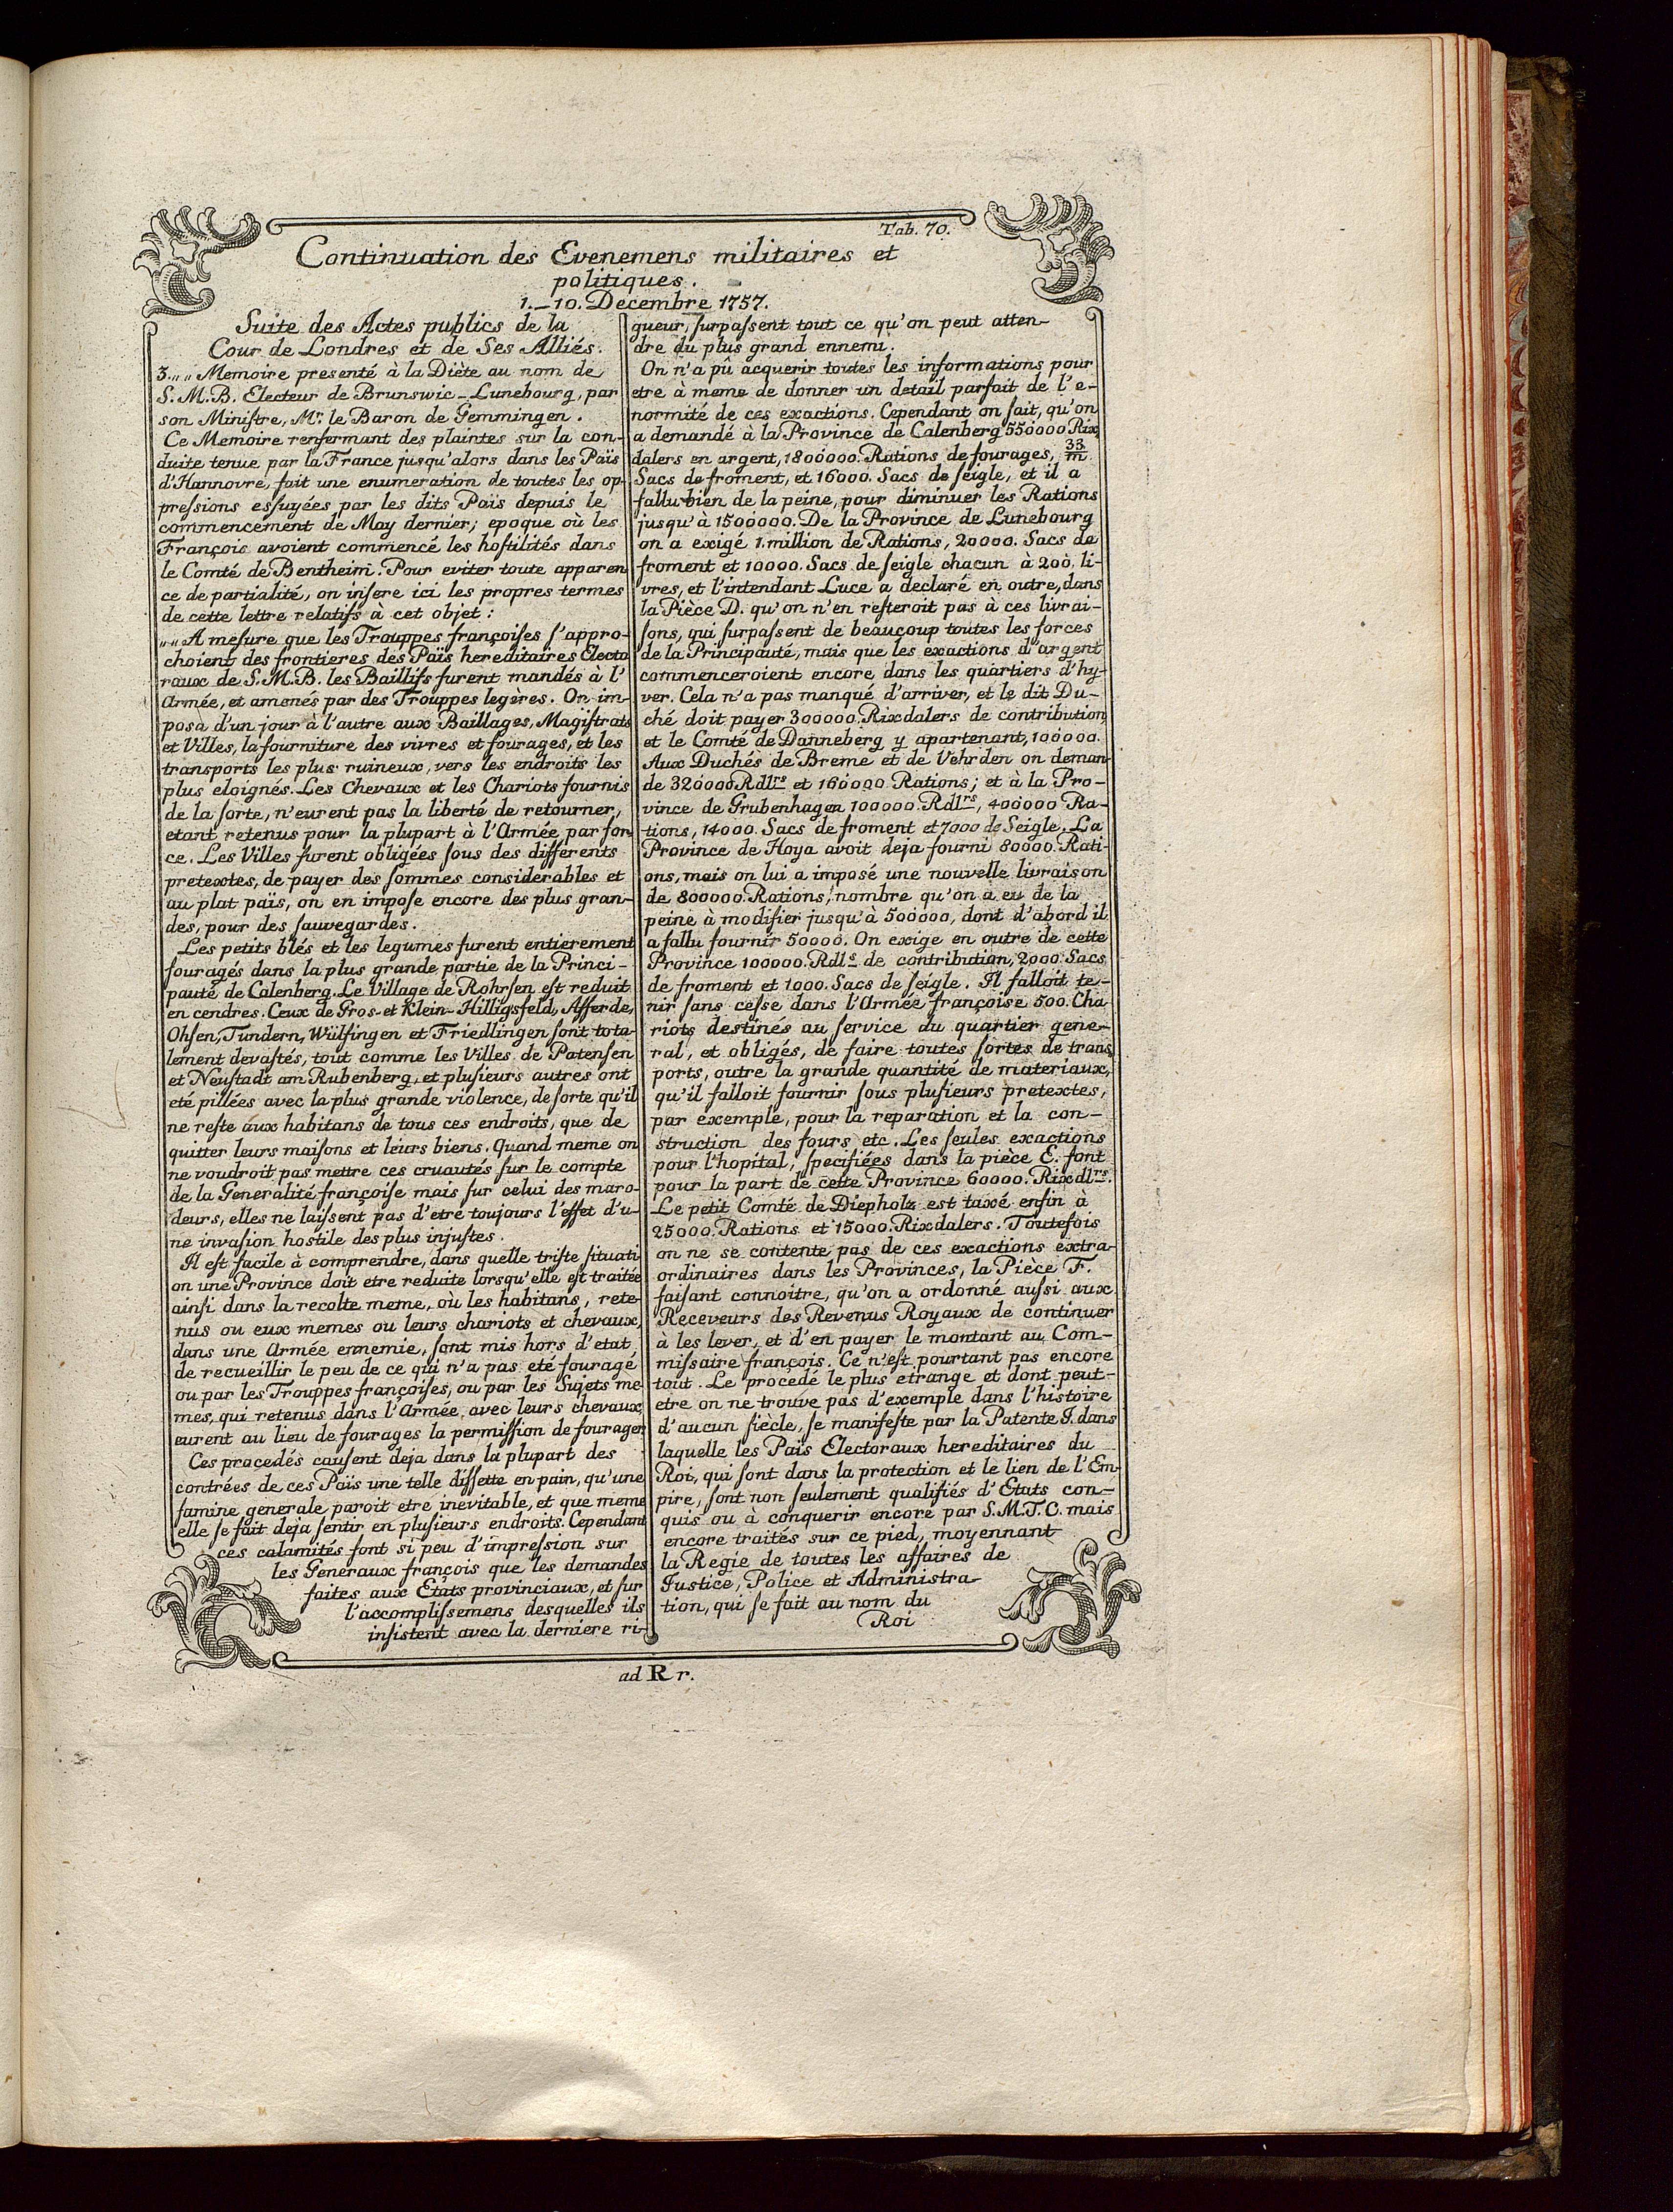 Tab. 70.
Continuation des Evenemens militaires et
politiques.
1.–10. Decembre 1757.
Suite des Actes publics de la
Cour de Londres et de Ses Alliés.
3.„„ Memoire presenté à la Diète au nom de
S. M. B. Electeur de Brunswic-Lunebourg, par
son Miniſtre, Mr. le Baron de Gemmingen.
Ce Memoire renfermant des plaintes sur la con-
duite tenue par la France jusqu'alors dans les Païs
d'Hannovre, fait une enumeration de toutes les op-
preſsions eſsuyées par les dits Païs depuis le
commencement de May dernier; epoque où les
François avoient commencé les hoſtilités dans
le Comté de Bentheim. Pour eviter toute apparen
ce de partialité, on inſere ici les propres termes
de cette lettre relatifs à cet objet:
„„A meſure que les Trouppes françoiſes ſ'appro-
choient des frontieres des Païs hereditaires Electo
raux de S. M. B. les Baillifs furent mandés à l'
Armée, et amenés par des Trouppes legères. On im-
posa d'un jour à l'autre aux Baillages, Magiſtrats
et Villes, la fourniture des vivres et fourages, et les
transports les plus ruineux, vers les endroits les
plus eloignés. Les Chevaux et les Chariots fournis
de la ſorte, n'eurent pas la liberté de retourner,
etant retenus pour la plupart à l'Armée par for
ce. Les Villes furent obligées ſous des differents
pretextes, de payer des ſommes considerables et
au plat païs, on en impoſe encore des plus gran-
des, pour des ſauvegardes.
Les petits blés et les legumes furent entierement
fouragés dans la plus grande partie de la Princi-
pauté de Calenberg. Le Village de Rohrſen eſt reduit
en cendres. Ceux de Gros- et Klein-Hilligsfeld, Afferde,
Ohſen, Tundern, Wülfingen et Friedlingen ſont tota-
lement devaſtés, tout comme les Villes de Patenſen
et Neuſtadt am Rubenberg, et pluſieurs autres ont
eté pillées avec la plus grande violence, de ſorte qu'il
ne reſte aux habitans de tous ces endroits, que de
quitter leurs maiſons et leurs biens. Quand meme on
ne voudroit pas mettre ces cruautés ſur le compte
de la Generalité françoiſe mais ſur celui des maro-
deurs, elles ne laiſsent pas d'etre toujours l'effet d'u-
ne invaſion hostile des plus injuſtes.
Il eſt facile à comprendre, dans quelle triſte ſituati
on une Province doit etre reduite lorsqu'elle eſt traitée
ainſi dans la recolte meme, où les habitans, rete-
nus ou eux memes ou leurs chariots et chevaux,
dans une Armée ennemie, ſont mis hors d'etat
de recueillir le peu de ce qui n'a pas eté fouragé
ou par les Trouppes françoiſes, ou par les Sujets me-
mes, qui retenus dans l'Armée avec leurs chevaux,
eurent au lieu de fourages la permiſſion de fourager.
Ces procedés cauſent deja dans la plupart des
contrées de ces Païs une telle diſſette en pain, qu'une
famine generale paroit etre inevitable, et que meme
elle ſe fait deja ſentir en pluſieurs endroits. Cependant
ces calamités font si peu d'impreſsion sur
les Generaux françois que les demandes
faites aux États provinciaux, et ſur
l'accompliſsemens desquelles ils
inſistent avec la derniere ri-
gueur, ſurpaſsent tout ce qu'on peut atten-
dre du plus grand ennemi.
On n'a pû acquerir toutes les informations pour
etre à meme de donner un detail parfait de l'e-
normité de ces exactions. Cependant on ſait, qu'on
a demandé à la Province de Calenberg 550000 Rix
dalers en argent, 1800000. Rations de fourages, 33/m
Sacs de froment, et 16000. Sacs de ſeigle, et il a
fallu bien de la peine, pour diminuer les Rations
jusqu'à 1500000. De la Province de Lunebourg
on a exigé 1. million de Rations, 20000. Sacs de
froment et 10000. Sacs de ſeigle chacun à 200. li-
vres, et l'intendant Luce a declaré en outre, dans
la Pièce D. qu'on n'en reſteroit pas à ces livrai-
ſons, qui ſurpaſsent de beaucoup toutes les forces
de la Principauté, mais que les exactions d'argent
commenceroient encore dans les quartiers d'hy-
ver. Cela n'a pas manqué d'arriver, et le dit Du-
ché doit payer 300000. Rixdalers de contribution,
et le Comté de Danneberg y apartenant, 100000.
Aux Duchés de Breme et de Vehrden on deman
de 320000 Rdlrs et 160000 Rations; et à la Pro-
vince de Grubenhagen 100000. Rdlrs, 400000 Ra-
tions, 14000. Sacs de froment et 7000 de Seigle. La
Province de Hoya avoit deja fourni 80000. Rati-
ons, mais on lui a imposé une nouvelle livraison
de 800000. Rations, nombre qu'on a eu de la
peine à modifier jusqu'à 500000, dont d'abord il
a fallu fournir 50000. On exige en outre de cette
Province 100000. Rdls de contribution, 2000. Sacs
de froment et 1000. Sacs de ſeigle. Il falloit te-
nir ſans ceſse dans l'Armée françoise 500. Cha
riots destinés au ſervice du quartier gene-
ral, et obligés, de faire toutes ſortes de trans
ports, outre la grande quantité de materiaux,
qu'il falloit fournir ſous pluſieurs pretextes,
par exemple, pour la reparation et la con-
struction des fours etc. Les ſeules exactions
pour l'hopital, ſpecifiées dans la pièce E. font
pour la part de cette Province 60000. Rixdlrs.
Le petit Comté de Diepholz est taxé enfin à
25000. Rations et 15000. Rixdalers. Toutefois
on ne se contente pas de ces exactions extra-
ordinaires dans les Provinces, la Pièce F.
faiſant connoitre, qu'on a ordonné auſsi aux
Receveurs des Revenus Royaux de continuer
à les lever, et d'en payer le montant au Com-
miſsaire françois. Ce n'eſt pourtant pas encore
tout. Le procedé le plus etrange et dont peut-
etre on ne trouve pas d'exemple dans l'histoire
d'aucun ſiècle, ſe manifeſte par la Patente J. dans
laquelle les Païs Electoraux hereditaires du
Roi, qui ſont dans la protection et le lien de l'Em-
pire, ſont non ſeulement qualifiés d'Etats con-
quis ou à conquerir encore par S. M. T. C. mais
encore traités sur ce pied, moyennant
la Regie de toutes les affaires de
Justice, Police et Administra-
tion, qui ſe fait au nom du
Roi
ad R r.